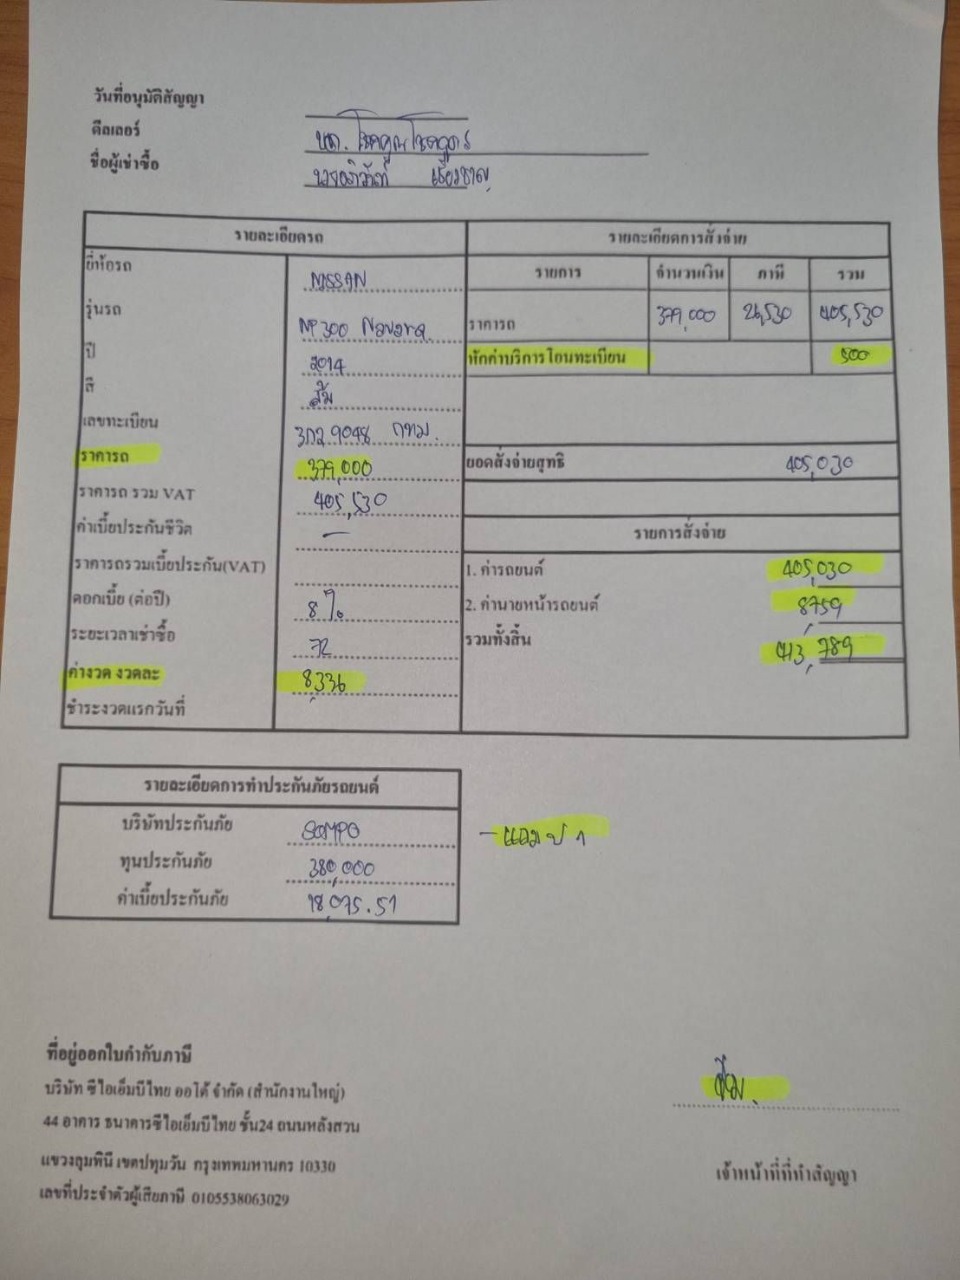 วันที่อนุมัติสัญญา
ดีลเลอร์ หจก. โชคคูณโชคถาวร
ชื่อผู้เช่าซื้อ
รายละเอียดรถ
ยี่ห้อรถ NISSAN
รุ่นรถ NP 300 Navara
ปี 2014
สี ส้ม
เลขทะเบียน 3ฒว 9048 กทม.
ราคารถ 379,000
ราคารถ รวม VAT 405,530
ค่าเบี้ยประกันชีวิต –
ราคารถรวมเบี้ยประกัน(VAT)
ดอกเบี้ย (ต่อปี) 8%
ระยะเวลาเช่าซื้อ 72
ค่างวด งวดละ 8,336
ชำระงวดแรกวันที่
รายละเอียดการสั่งจ่าย
รายการ จำนวนเงิน ภาษี รวม
ราคารถ 379,000 26,530 405,530
หักค่าบริการโอนทะเบียน 500
ยอดสั่งจ่ายสุทธิ 405,030
รายการสั่งจ่าย
1. ค่ารถยนต์ 405,030
2. ค่านายหน้ารถยนต์ 8,759
รวมทั้งสิ้น 413,789
รายละเอียดการทำประกันภัยรถยนต์
บริษัทประกันภัย SOMPO
ทุนประกันภัย 380,000
ค่าเบี้ยประกันภัย 18,075.51
- แถม ป 1
ที่อยู่ออกใบกำกับภาษี
บริษัท ซีไอเอ็มบีไทย ออโต้ จำกัด (สำนักงานใหญ่)
44 อาคาร ธนาคารซีไอเอ็มบีไทย ชั้น24 ถนนหลังสวน
แขวงลุมพินี เขตปทุมวัน กรุงเทพมหานคร 10330
เลขที่ประจำตัวผู้เสียภาษี 0105538063029
เจ้าหน้าที่ที่ทำสัญญา